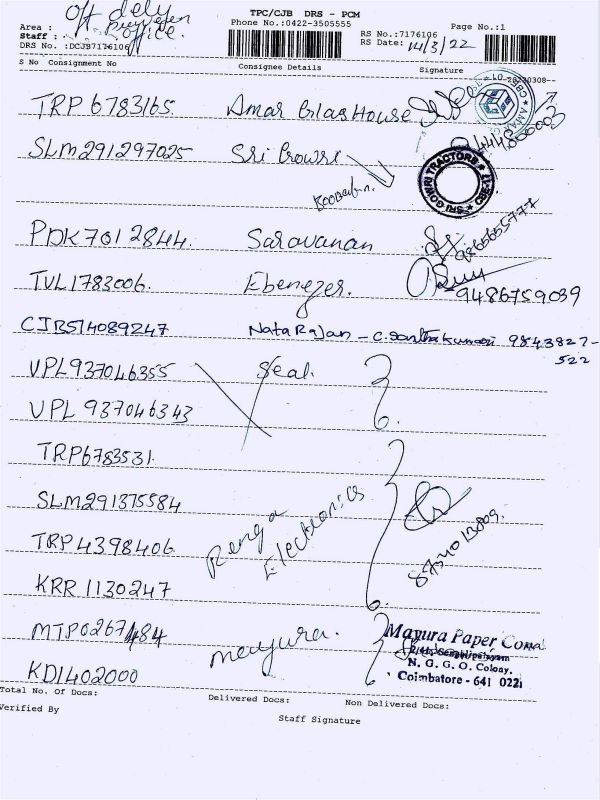 Off dely
Office.
TPC/CJB DRS - PCM
Area :
Phone No.:0422-3505555
Page No.:1
Staff :
RS No.:7176106
DRS No. :DCJB7176106
RS Date: 14/3/22
S No Consignment No Consignee Details Signature
TRP 6783165. Amar Glass House
SLM291297025 Sri Gowri
SRI GOWRI TRACTORS
PDK7012844. Saravanan 9865655777
TVL1783006. Ebenezer. 9486759039
CJB514089247 Natarajan - C. Santhakumari 9843827-
522
VPL937046355 Seal.
VPL 937046343
TRP6783531.
SLM291375584
TRP4398406 Renga
Electronics
KRR 1130247
MTP0267484 Mayura.
KDI402000
Mayura Paper Conal
N. G. G. O. Colony.
Coimbatore - 641 022
Total No. of Docs: Delivered Docs: Non Delivered Docs:
Verified By Staff Signature